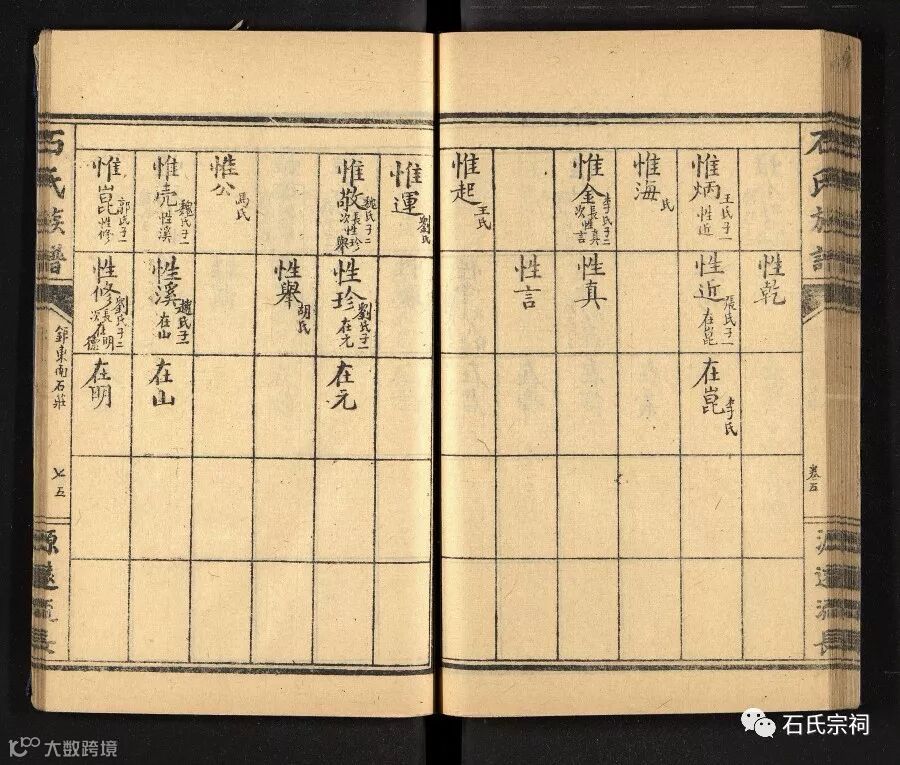 石氏族譜
卷五
源遠流長
性乾
惟炳 王氏子一 性近
性近 張氏子一 在崑
在崑 李氏
惟海 氏
惟金 李氏子二 長性真 次性言
性真
性言
惟起 王氏
惟運 劉氏
惟敬 魏氏子二 長性珍 次性舉
性珍 劉氏子一 在元
在元
性舉 胡氏
惟公 馬氏
惟亮 魏氏子一 性溪
性溪 趙氏子一 在山
在山
惟崑 郭氏子一 性修
性修 劉氏子二 長在明 次在德
在明
石氏族譜
鉅東南石莊
七五
源遠流長
石氏宗祠
大数跨境